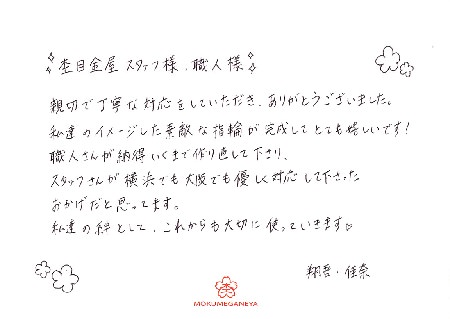 杢目金屋 スタッフ様、職人様
親切で丁寧な対応をしていただき、ありがとうございました。
私達のイメージした素敵な指輪が完成してとても嬉しいです！
職人さんが納得いくまで作り直して下さり、
スタッフさんが横浜でも大阪でも優しく対応して下さった
おかげだと思ってます。
私達の絆として、これからも大切に使っていきます。
翔吾・佳奈
MOKUMEGANEYA